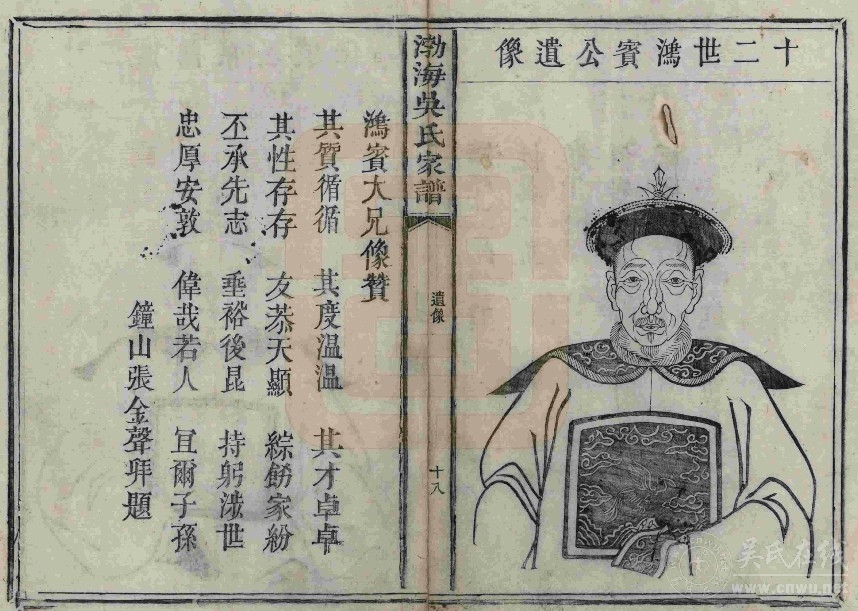 十二世鴻賓公遺像
渤海吳氏家譜
遺像
十八
鴻賓大兄像贊
其質循循 其度温温 其才卓卓
其性存存 友恭天顯 綜餝家紛
丕承先志 垂裕後昆 持躬涉世
忠厚安敦 偉哉若人 宜爾子孫
鐘山張金聲拜題
吴氏在线
www.cnwu.net